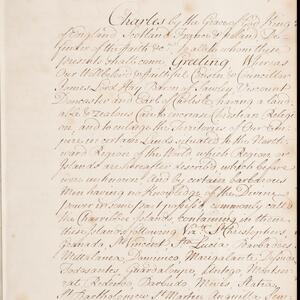 Charles by the Grace of God King
of England Scotland France & Ireland De-
fender of the Faith &c. To all to whom these
presents shall come Greeting Whereas
Our Wellbeloved & Faithful Cousin & Councillor
James Lord Hay Baron of Sawley Viscount
Doncaster and Earl of Carlisle having a laud-
able & zealous Care to increase Christian Religi-
on, and to enlarge the Territories of Our Em-
pire in certain Lands situated to the North-
ward Region of the World, which Region or
Islands are hereafter described, which before
were unknown, and by certain barbarous
Men having no Knowledge of the Divine
power in some part possess'd, commonly called
the Charibbee Islands containing in them
these Islands following Viz. St. Christophers,
Granado, St. Vincent, Sta. Lucia, Barbadoes
Mittalanea, Dominico, Marigalante,
Todasantes, Guardaloupe, Antego, Montser-
rat, Redendo, Barbudo, Mevis, Statia,
St. Bartholomew, St. Martin, Anguilla,